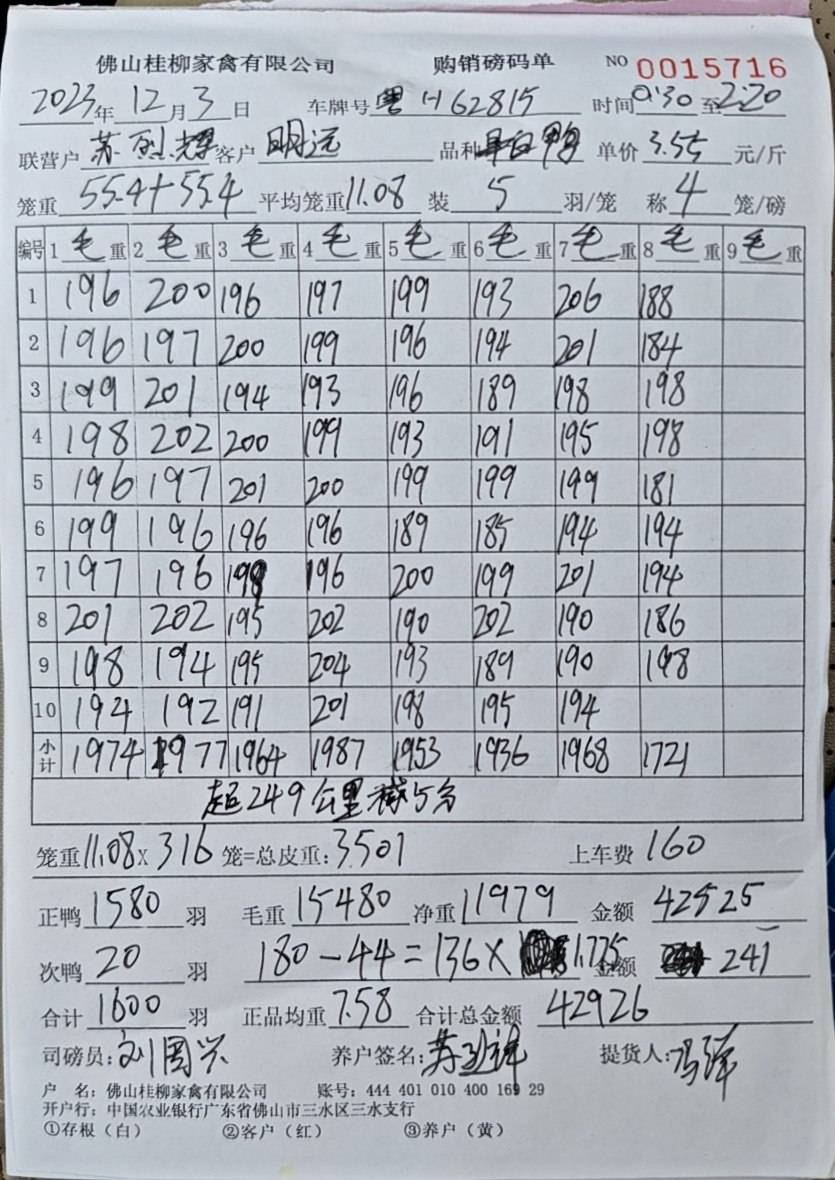 佛山桂柳家禽有限公司 购销磅码单 NO 0015716
2023年 12月 3日 车牌号 粤H62815 时间 0:30 至 2:20
联营户 苏烈辉 客户 明远 品种 白鸭 单价 3.55 元/斤
笼重 55.4+55.4 平均笼重 11.08 装 5 羽/笼 称 4 笼/磅
编号 1 毛 重 2 毛 重 3 毛 重 4 毛 重 5 毛 重 6 毛 重 7 毛 重 8 毛 重 9 毛 重
1 196 200 196 197 199 193 206 188
2 196 197 200 199 196 194 201 184
3 199 201 194 193 196 189 198 198
4 198 202 200 199 193 191 195 198
5 196 197 201 200 199 199 199 181
6 199 196 196 196 189 185 194 194
7 197 196 198 196 200 199 201 194
8 201 202 195 202 190 202 190 186
9 198 194 195 204 193 189 190 198
10 194 192 191 201 198 195 194
小计 1974 1977 1964 1987 1953 1936 1968 1721
超249公里减5分
笼重 11.08 X 316 笼=总皮重: 3501 上车费 160
正鸭 1580 羽 毛重 15480 净重 11979 金额 42525
次鸭 20 羽 180-44=136× 1.775 金额 241
合计 1600 羽 正品均重 7.58 合计总金额 42926
司磅员: 刘国兴 养户签名: 提货人: 冯
户 名: 佛山桂柳家禽有限公司 账号: 444 401 010 400 169 29
开户行: 中国农业银行广东省佛山市三水区三水支行
①存根(白) ②客户(红) ③养户(黄)